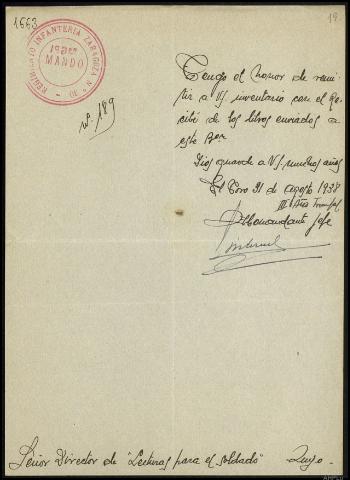 1663
19
REGIMIENTO INFANTERIA ZARAGOZA Nº 30
MANDO
nº. 189
Tengo el honor de remi-
tir a VS inventario con el Re-
cibí de los libros enviados a
este Bon
Dios guarde a VS. muchos años
El Toro 31 de agosto 1938
III Año Triunfal
El Comandante Jefe
Señor Director de "Lecturas para el soldado"